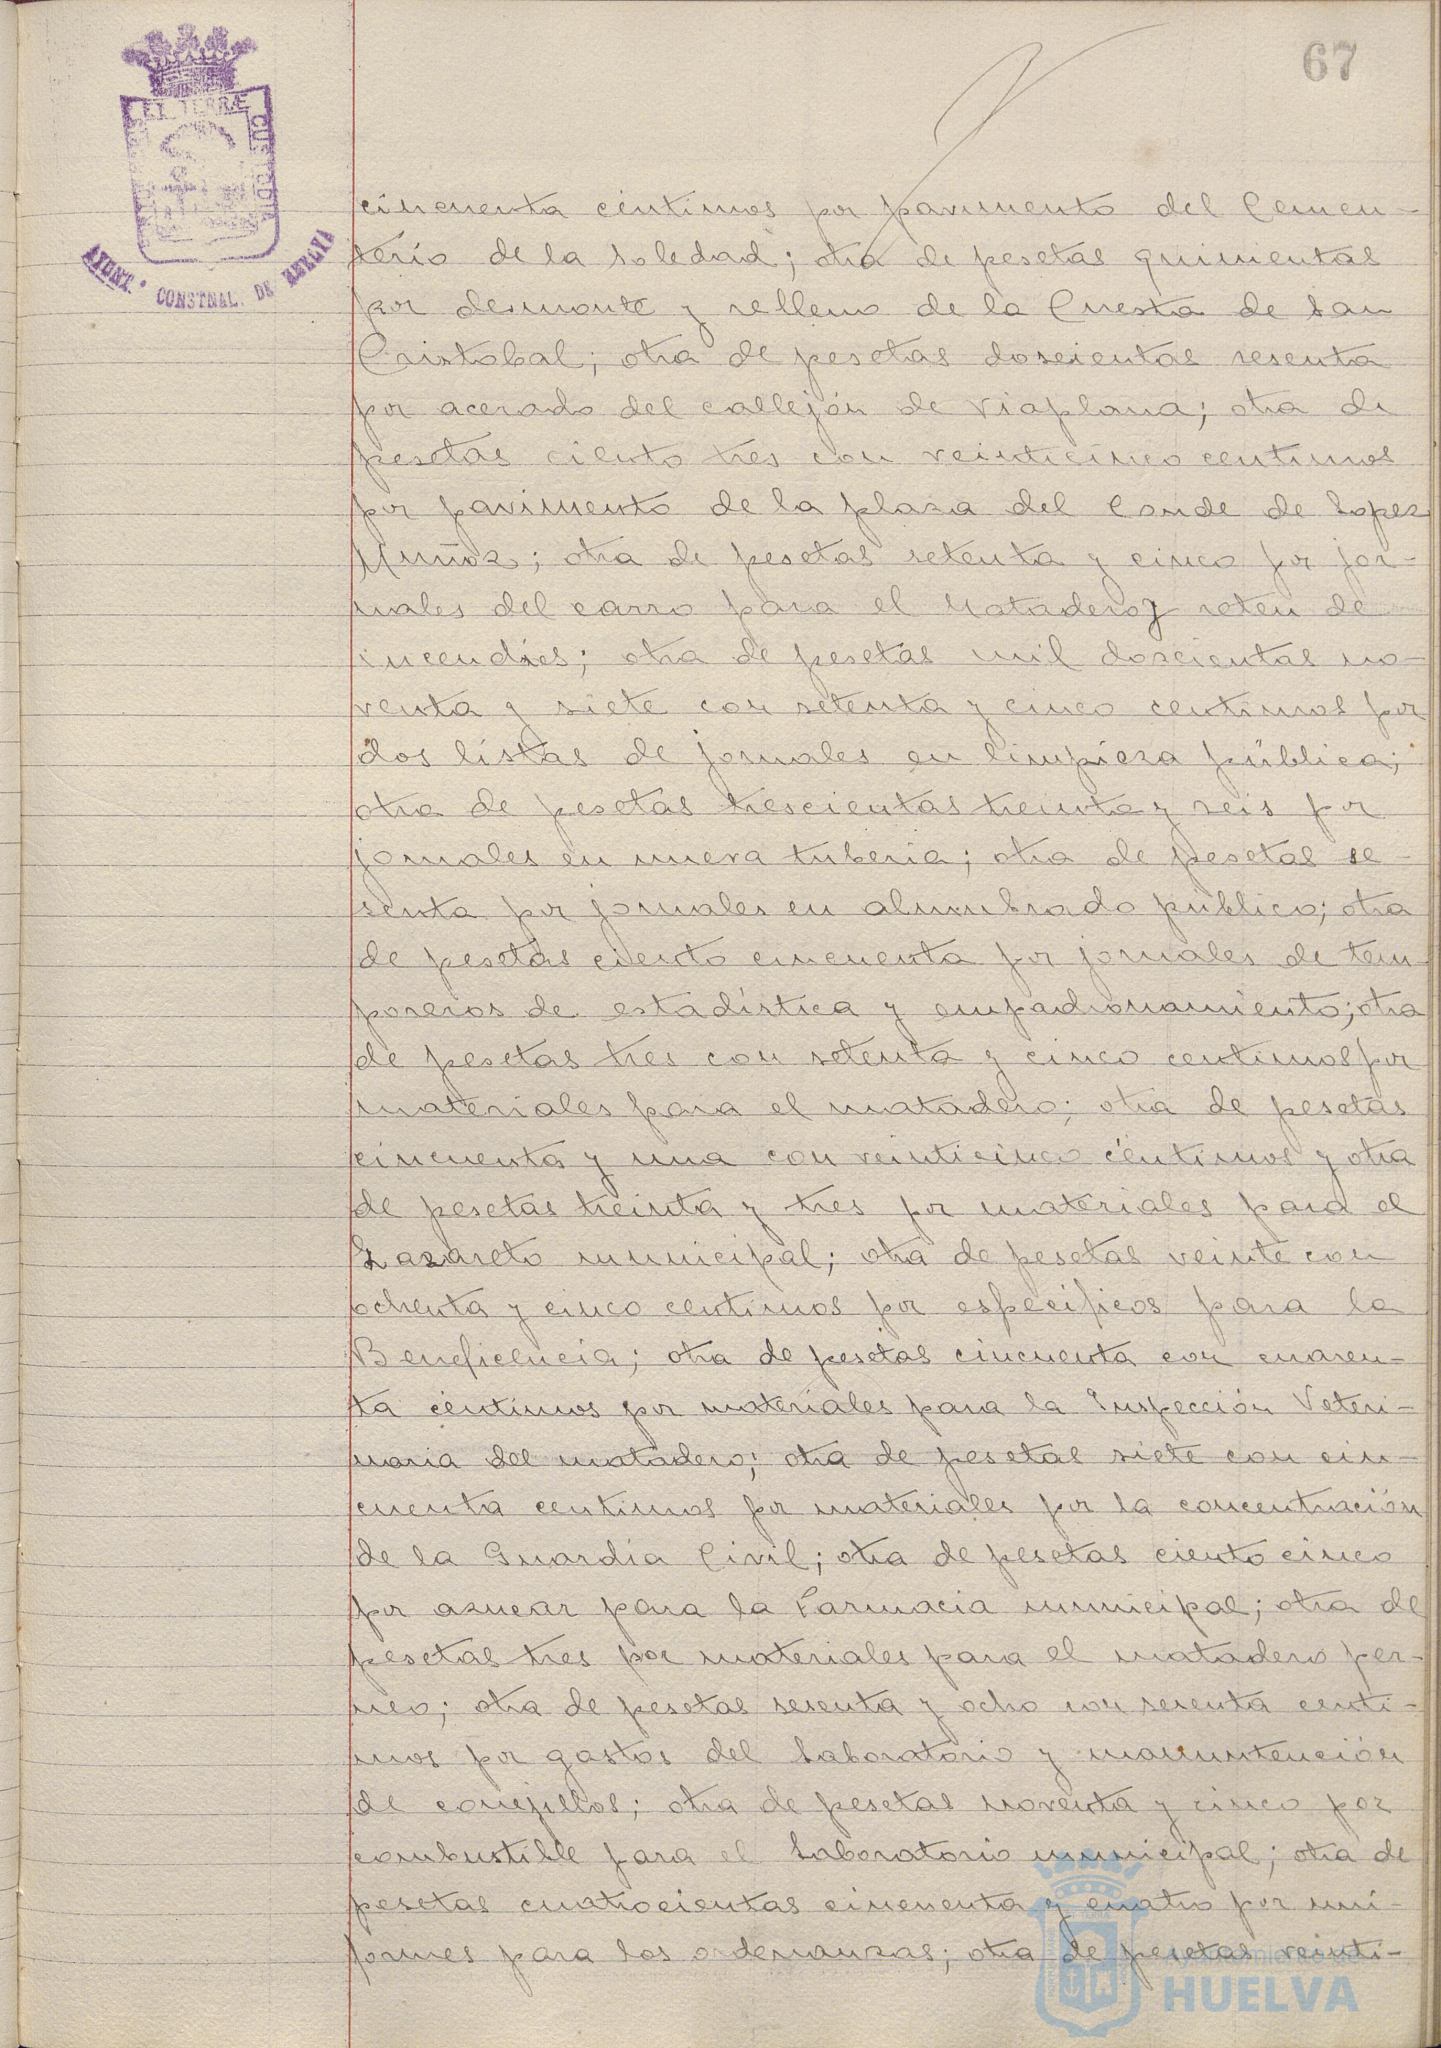 67
ET TERRÆ CUSTODIA
AYUNT. CONSTNAL. DE HUELVA
cincuenta céntimos por pavimento del Cemen-
terio de la Soledad; otra de pesetas quinientas
por desmonte y relleno de la Cuesta de San
Cristobal; otra de pesetas doscientas sesenta
por acerado del callejón de Viaplana; otra de
pesetas ciento tres con veinticinco centimos
por pavimento de la plaza del Conde de Lopez
Muñoz; otra de pesetas setenta y cinco por jor-
nales del carro para el Matadero y reten de
incendios; otra de pesetas mil doscientas no-
venta y siete con setenta y cinco centimos por
dos listas de jornales en limpieza pública;
otra de pesetas trescientas treinta y seis por
jornales en nueva tuberia; otra de pesetas se-
senta por jornales en alumbrado público; otra
de pesetas ciento cincuenta por jornales de tem-
poreros de estadística y empadronamiento; otra
de pesetas tres con setenta y cinco centimos por
materiales para el matadero; otra de pesetas
cincuenta y una con veinticinco céntimos y otra
de pesetas treinta y tres por materiales para el
Lazareto municipal; otra de pesetas veinte con
ochenta y cinco centimos por especificos para la
Beneficencia; otra de pesetas cincuenta con cuaren-
ta céntimos por materiales para la Inspección Veteri-
naria del matadero; otra de pesetas siete con cin-
cuenta centimos por materiales por la concentración
de la Guardia Civil; otra de pesetas ciento cinco
por azucar para la Farmacia municipal; otra de
pesetas tres por materiales para el matadero per-
neo; otra de pesetas sesenta y ocho con sesenta centi-
mos por gastos del Laboratorio y manuntención
de conejillos; otra de pesetas noventa y cinco por
combustible para el Laboratorio municipal; otra de
pesetas cuatrocientas cincuenta y cuatro por uni-
formes para los ordenanzas; otra de pesetas veinti-
Ayuntamiento de
HUELVA